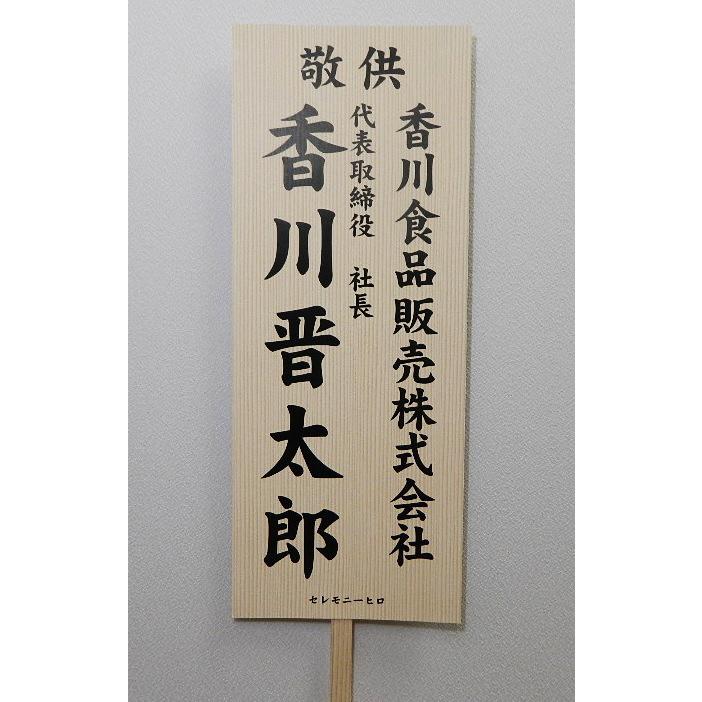 敬供
香川食品販売株式会社
代表取締役 社長
香川晋太郎
セレモニーヒロ